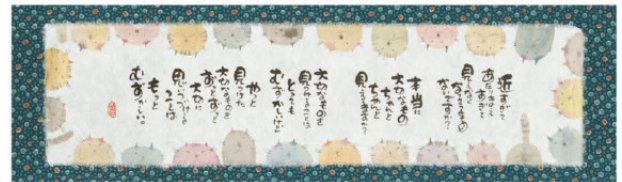 近すぎて
あたりまえすぎて
見えなく
なってるもの
ないですか？
本当に
大切なもの
ちゃんと
ちゃんと
見えてますか？
大切なものを
見つけることは
とても
むずかしいけど
やっと
見つけた
大切なものを
ずっとずっと
大切に
思いつづける
ことは
もっと
むずかしい。